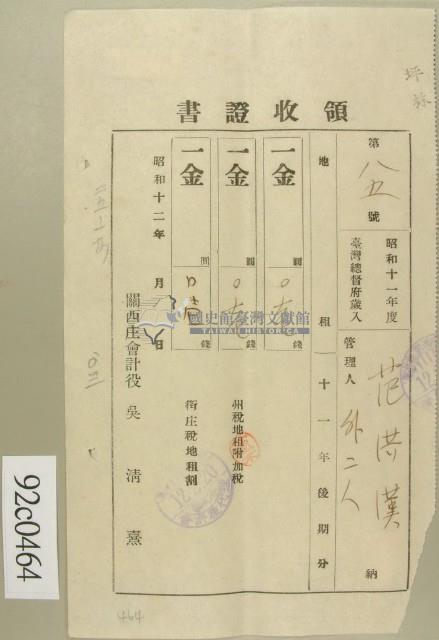 坪林
領收證書
第八五號
昭和十一年度
臺灣總督府歲入
管理人
范洪漢
外二人
納
地租 十一年後期分
一金 圓 錢
一金 圓 錢 州稅地租附加稅
一金 圓 錢 街庄稅地租割
昭和十二年 月 日
關西庄會計役 吳清熹
國史館臺灣文獻館
TAIWAN HISTORICA
92c0464
464